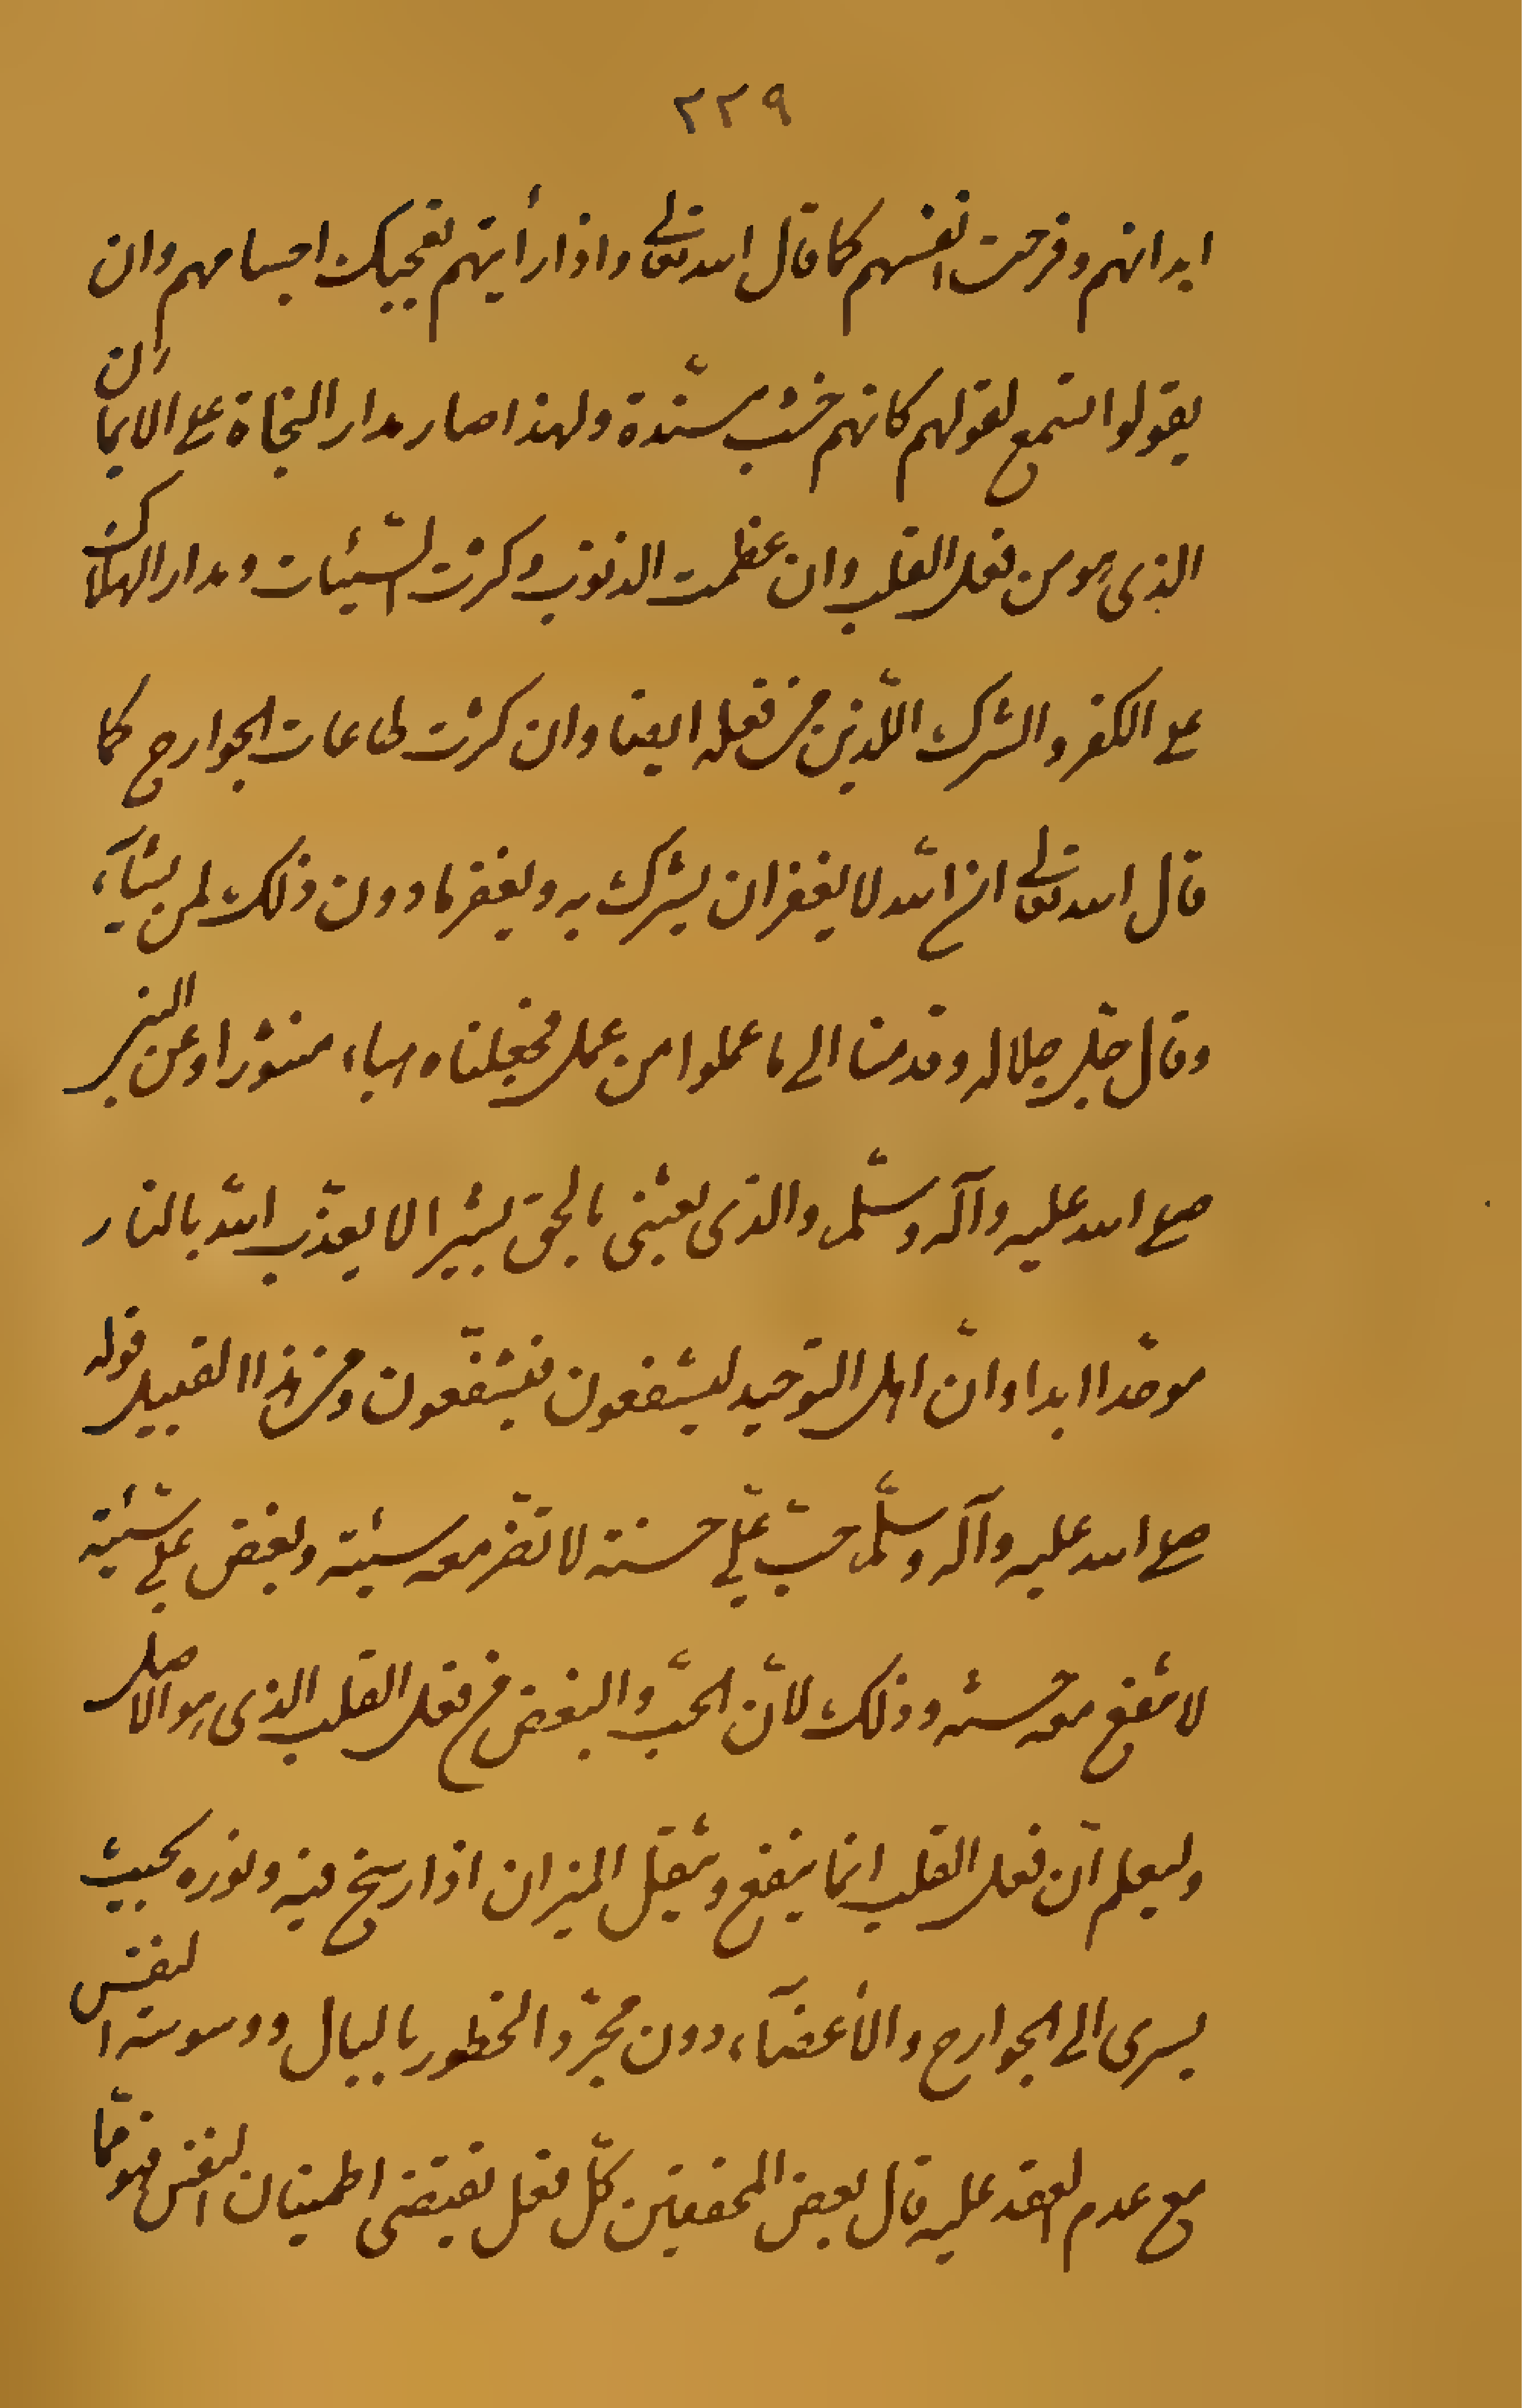 ٢٢٩
ابدانهم وفرحت انفسهم كما قال الله تعالى واذا رأيتهم تعجبك اجسامهم وان
يقولوا تسمع لقولهم كانهم خشب مسنّدة ولهذا صار مدار النجاة على الايمان
الذى هو من فعل القلب وان عظمت الذنوب وكثرت السّيئات ومدار الهلاك
على الكفر والشرك اللّذين من فعله ايضا وان كثرت طاعات الجوارح كما
قال الله تعالى ان الله لا يغفر ان يشرك به ويغفر ما دون ذلك لمن يشآء
وقال جلّ جلاله وقدمنا الى ما عملوا من عمل فجعلناه هباء منثورا وعن النبى
صلى الله عليه وآله وسلّم والذى بعثنى بالحق بشيرا لا يعذّب الله بالنار
موحّدا ابدا وانّ اهل التوحيد ليشفعون فيشفّعون ومن هذا القبيل قوله
صلى الله عليه وآله وسلّم حبّ علىّ حسنة لا تضّر معه سيئة وبغض على سّيئة
لا تنفع معه حسنة وذلك لانّ الحبّ والبغض من فعل القلب الذى هو الاصل
وليعلم انّ فعل القلب انما ينفع ويثقل الميزان اذا رسخ فيه ونوره بحيث
يسرى الى الجوارح والأعضآء دون مجرّد الخطور بالبال ووسوسة النفس
مع عدم العقد عليه قال بعض المحققين كلّ فعل يقتضى اطمينان النفس فهو ممّا